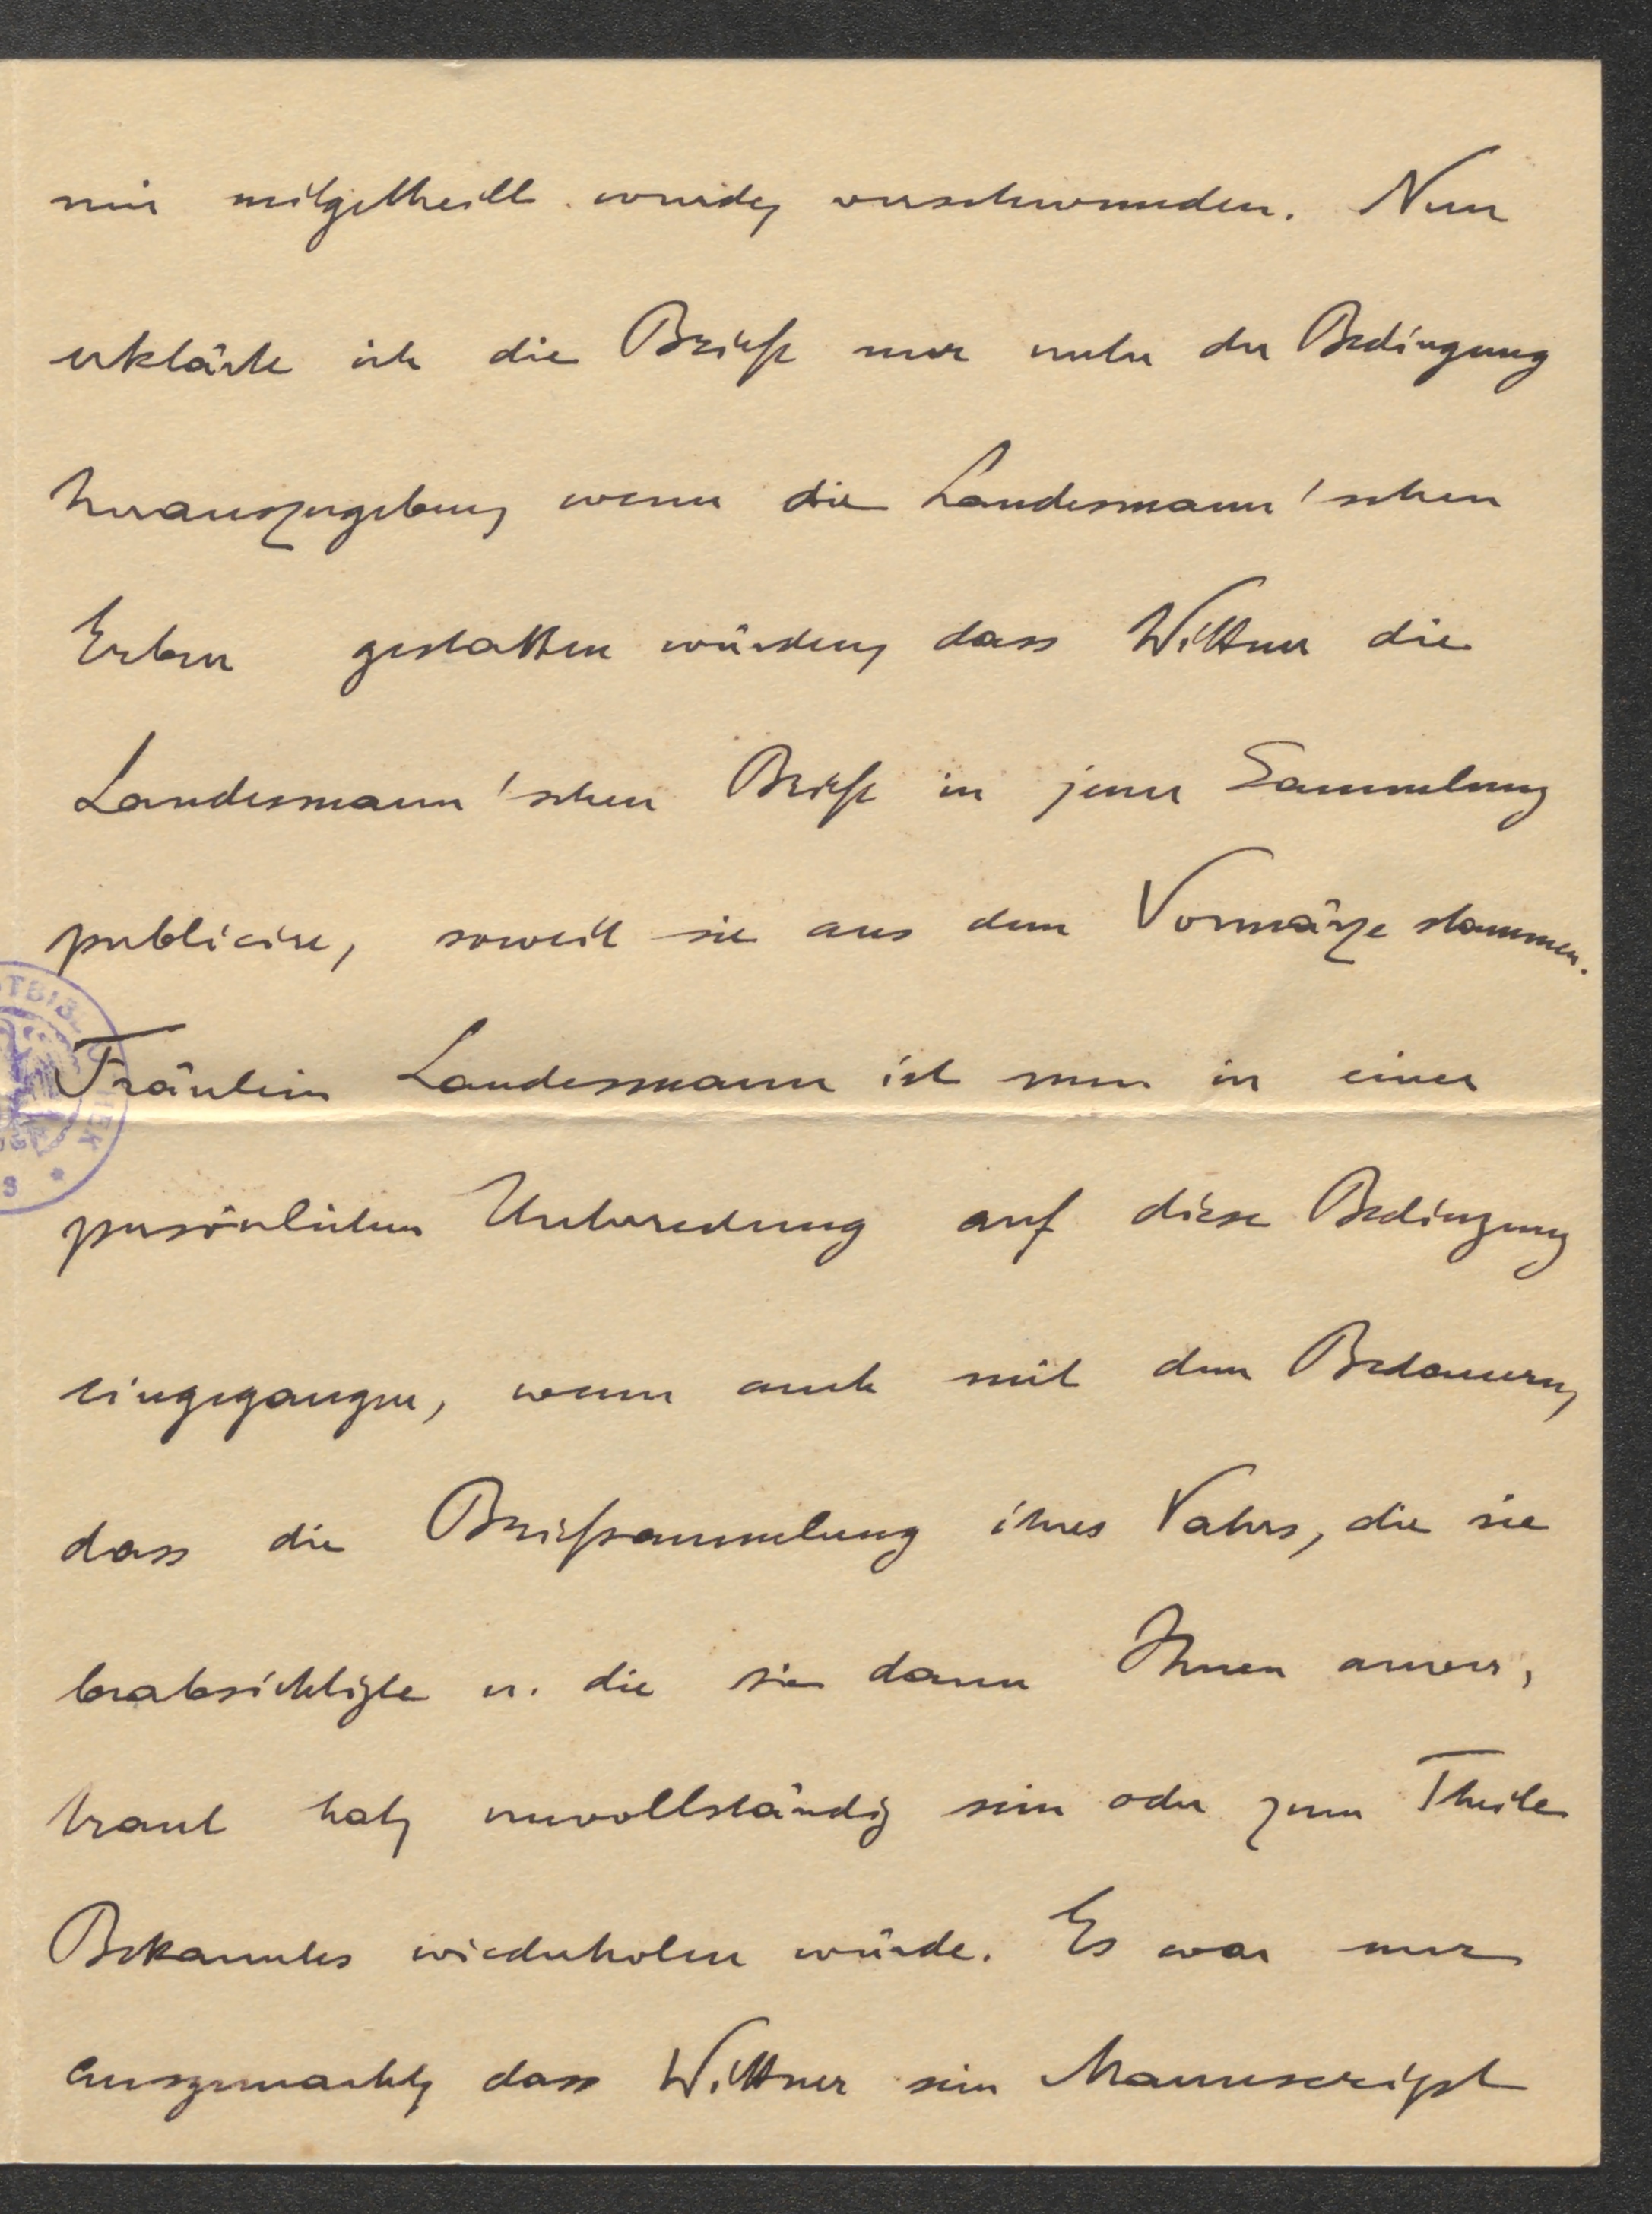 mir mitgetheilt wurde, verschwunden. Nun
erklärte ich die Briefe nur unter der Bedingung
herauszugeben, wenn die Landesmann'schen
Erben gestatten würden, dass Wittner die
Landesmann'schen Briefe in jener Sammlung
publicire, soweit sie aus dem Vormärze stammen.
Fräulein Landesmann ist nun in einer
persönlichen Unterredung auf diese Bedingung
eingegangen, wenn auch mit dem Bedauern,
dass die Briefsammlung ihres Vaters, die sie
beabsichtigte u. die sie dann Ihnen anver,
traut hat, unvollständig sein oder zum Theile
Bekanntes wiederholen würde. Es war nur
ausgemacht, dass Wittner sein Manuscript